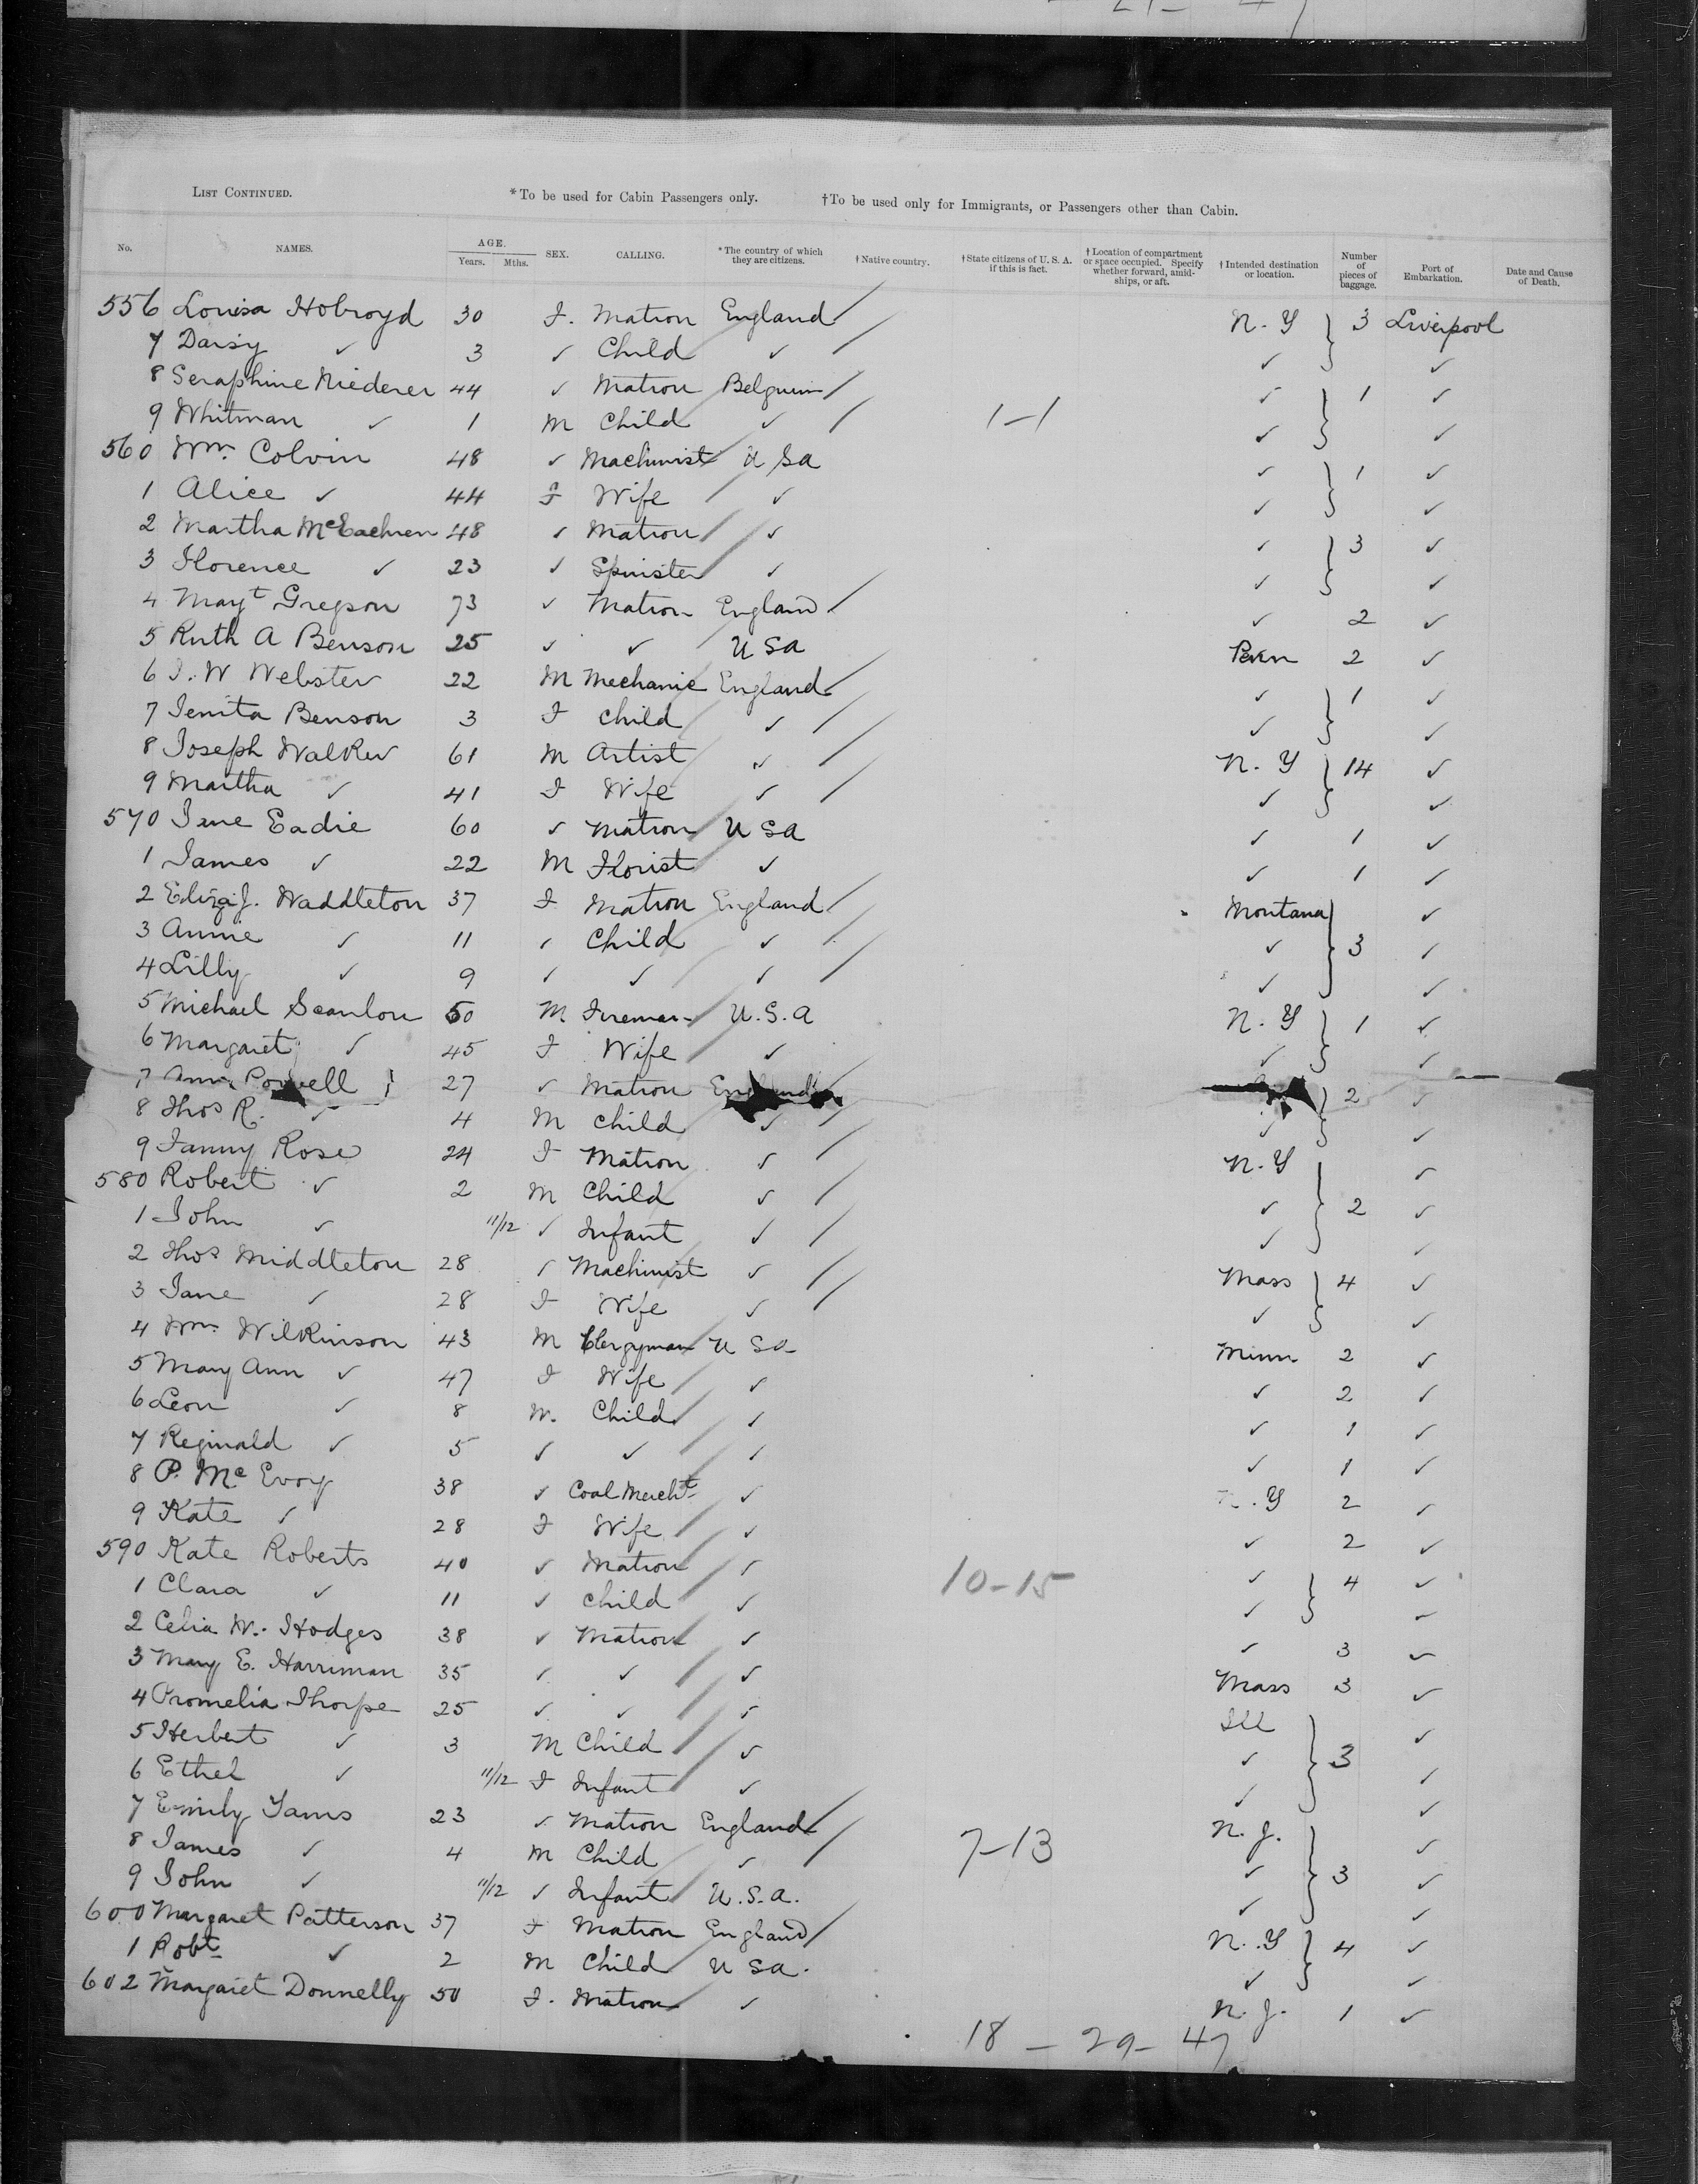 21 - 47
LIST CONTINUED. *To be used for Cabin Passengers only. †To be used only for Immigrants, or Passengers other than Cabin.
No. NAMES. AGE. Years. Mths. SEX. CALLING. *The country of which they are citizens. †Native country. †State citizens of U. S. A. if this is fact. †Location of compartment or space occupied. Specify whether forward, amid-ships, or aft. †Intended destination or location. Number of pieces of baggage. Port of Embarkation. Date and Cause of Death.
556 Louisa Holroyd 30 F. Matron England N. Y } 3 Liverpool
7 Daisy ✓ 3 ✓ Child ✓ ✓ ✓
8 Seraphine Niederer 44 ✓ Matron Belgium ✓ } 1 ✓
9 Whitman ✓ 1 M Child ✓ 1-1 ✓ ✓
560 Wm. Colvin 48 ✓ Machinist U Sa ✓ } 1 ✓
1 Alice ✓ 44 F Wife ✓ ✓ ✓
2 Martha McEachren 48 ✓ Matron ✓ ✓ } 3 ✓
3 Florence ✓ 23 ✓ Spinster ✓ ✓ ✓
4 Mayt Gregson 73 ✓ Matron England ✓ 2 ✓
5 Ruth A Benson 25 ✓ ✓ U Sa Penn 2 ✓
6 J. W Webster 22 M Mechanic England ✓ } 1 ✓
7 Jenita Benson 3 F Child ✓ ✓ ✓
8 Joseph Walker 61 M Artist ✓ N. Y } 14 ✓
9 Martha ✓ 41 F Wife ✓ ✓ ✓
570 Jane Eadie 60 ✓ Matron U Sa ✓ 1 ✓
1 James ✓ 22 M Florist ✓ ✓ 1 ✓
2 Eliza J. Waddleton 37 F Matron England Montana } ✓
3 Annie ✓ 11 ✓ Child ✓ ✓ 3 ✓
4 Lilly ✓ 9 ✓ ✓ ✓ ✓ ✓
5 Michael Scanlon 50 M Fireman U.S.A N. Y } 1 ✓
6 Margaret ✓ 45 F Wife ✓ ✓ ✓
7 Ann Powell 27 ✓ Matron England } 2 ✓
8 Thos R. ✓ 4 M Child ✓ ✓ ✓
9 Fanny Rose 24 F Matron ✓ N. Y } ✓
580 Robert ✓ 2 M Child ✓ ✓ 2 ✓
1 John ✓ 11/12 ✓ Infant ✓ ✓ ✓
2 Thos Middleton 28 ✓ Machinist ✓ Mass } 4 ✓
3 Jane ✓ 28 F Wife ✓ ✓ ✓
4 Wm. Wilkinson 43 M Clergyman U Sa Minn 2 ✓
5 Mary Ann ✓ 47 F Wife ✓ ✓ 2 ✓
6 Leon ✓ 8 M. Child ✓ ✓ 1 ✓
7 Reginald ✓ 5 ✓ ✓ ✓ ✓ 1 ✓
8 P. McEvoy 38 ✓ Coal Mercht ✓ N. Y 2 ✓
9 Kate ✓ 28 F Wife ✓ ✓ 2 ✓
590 Kate Roberts 40 ✓ Matron ✓ 10-15 ✓ } 4 ✓
1 Clara ✓ 11 ✓ Child ✓ ✓ ✓
2 Celia W. Hodges 38 ✓ Matron ✓ ✓ 3 ✓
3 Mary E. Harriman 35 ✓ ✓ ✓ Mass 3 ✓
4 Promelia Thorpe 25 ✓ ✓ ✓ Ill } ✓
5 Herbert ✓ 3 M Child ✓ ✓ 3 ✓
6 Ethel ✓ 11/12 F Infant ✓ ✓ ✓
7 Emily 23 ✓ Matron England N. J. } ✓
8 James ✓ 4 M Child ✓ 7-13 ✓ 3 ✓
9 John ✓ 11/12 ✓ Infant U.S.A. ✓ ✓
600 Margaret Patterson 37 F Matron England N. Y } 4 ✓
1 Robt ✓ 2 M Child U Sa. ✓ ✓
602 Margaret Donnelly 50 F. Matron ✓ N. J. 1 ✓
18 - 29 - 47